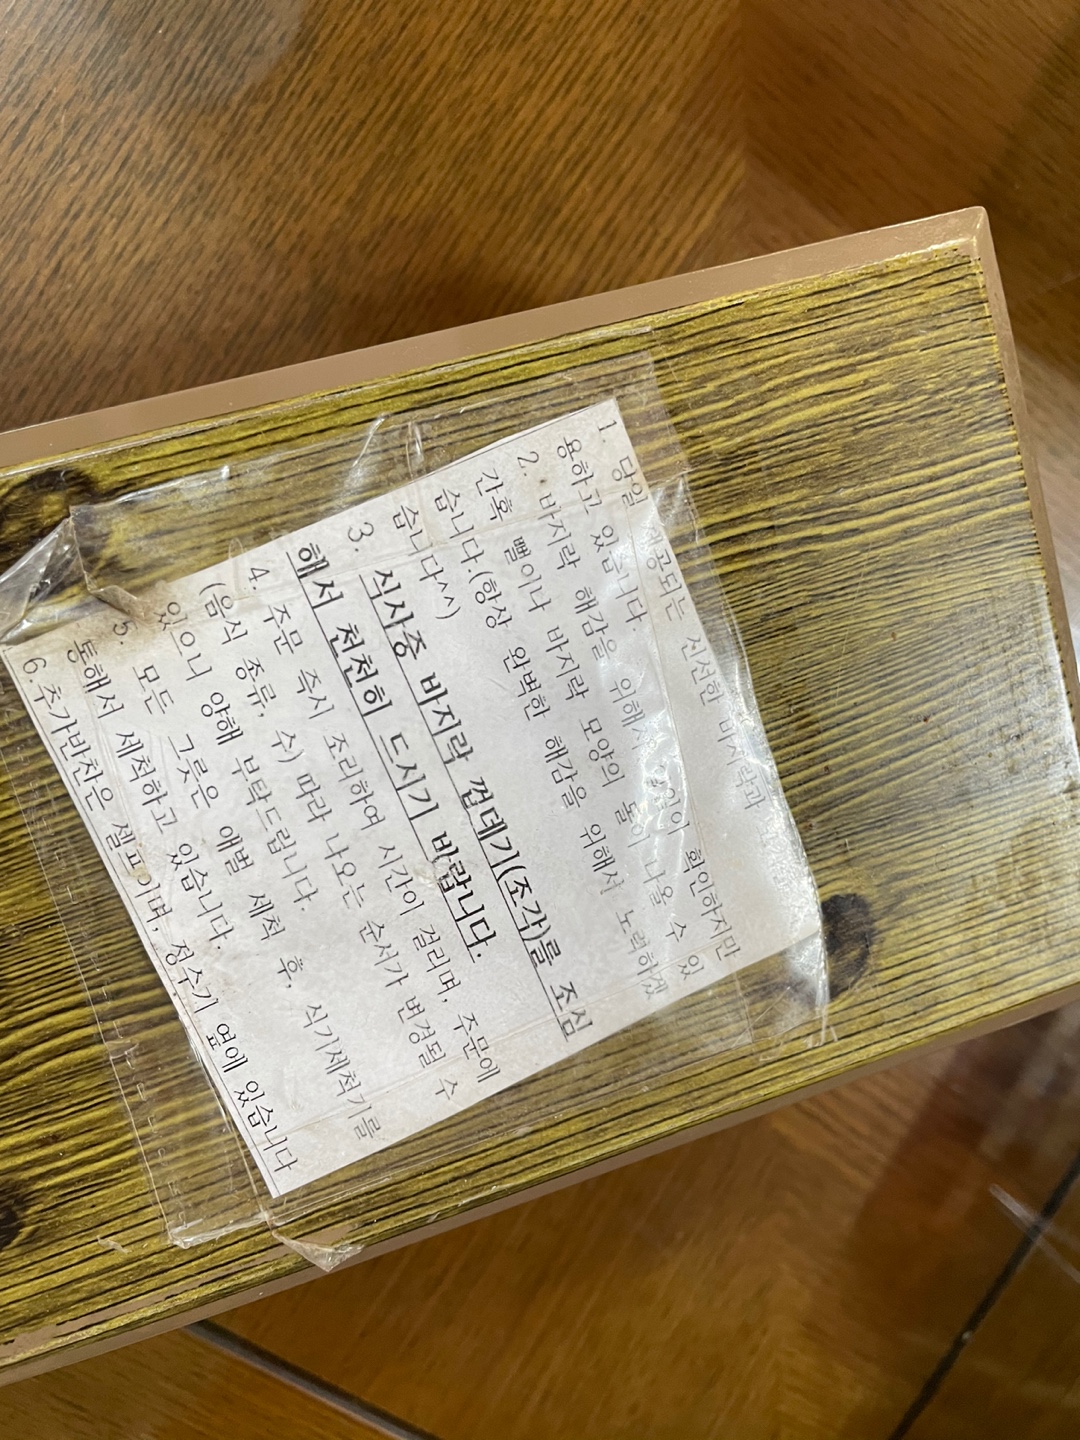 1. 당일 제공되는 신선한 바지락과
용하고 있습니다.
2. 바지락 해감을 위해서 확인하지만
간혹 뻘이나 바지락 모양의 돌이 나올 수 있
습니다.(항상 완벽한 해감을 위해서 노력하겠
습니다^^)
3. 식사중 바지락 껍데기(조각)를 조심
해서 천천히 드시기 바랍니다.
4. 주문 즉시 조리하여 시간이 걸리며, 주문에
(음식 종류, 수) 따라 나오는 순서가 변경될 수
있으니 양해 부탁드립니다.
5. 모든 그릇은 애벌 세척 후, 식기세척기를
통해서 세척하고 있습니다.
6.추가반찬은 셀프이며, 정수기 옆에 있습니다